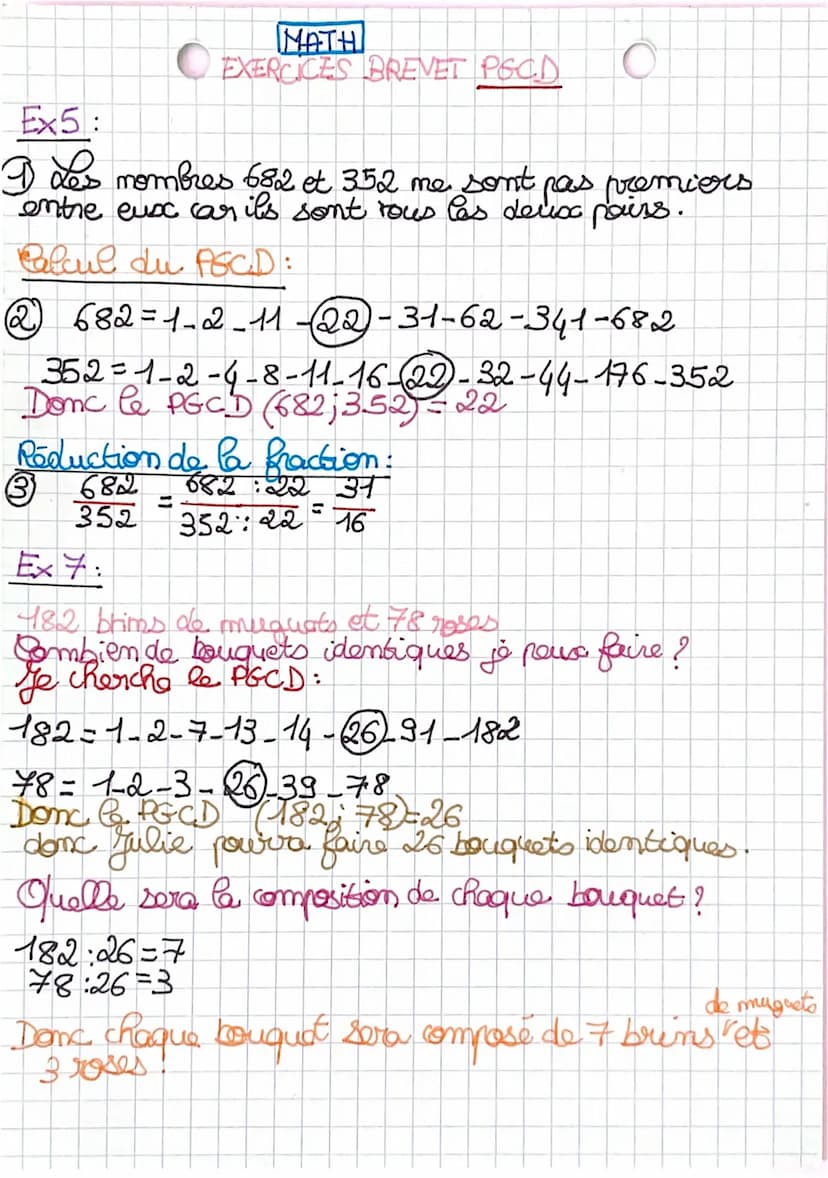 MATH
EXERCICES BREVET PGCD
Ex5 :
1) Les nombres 682 et 352 ne sont pas premiers
entre eux car ils sont tous les deux pairs.
Calcul du PGCD :
② 682 = 1 - 2 - 11 - 22 - 31 - 62 - 341 - 682
352 = 1 - 2 - 4 - 8 - 11 - 16 - 22 - 32 - 44 - 176 - 352
Donc le PGCD (682 ; 352) = 22
Réduction de la fraction :
③ 682/352 = 682 : 22 / 352 : 22 = 31/16
Ex 7 :
182 brins de muguets et 78 roses
Combien de bouquets identiques je peux faire ?
Je cherche le PGCD :
182 = 1 - 2 - 7 - 13 - 14 - 26 - 91 - 182
78 = 1 - 2 - 3 - 26 - 39 - 78
Donc le PGCD (182 ; 78) = 26
donc Julie pourra faire 26 bouquets identiques.
Quelle sera la composition de chaque bouquet ?
182 : 26 = 7
78 : 26 = 3
de muguets
Donc chaque bouquet sera composé de 7 brins et
3 roses !